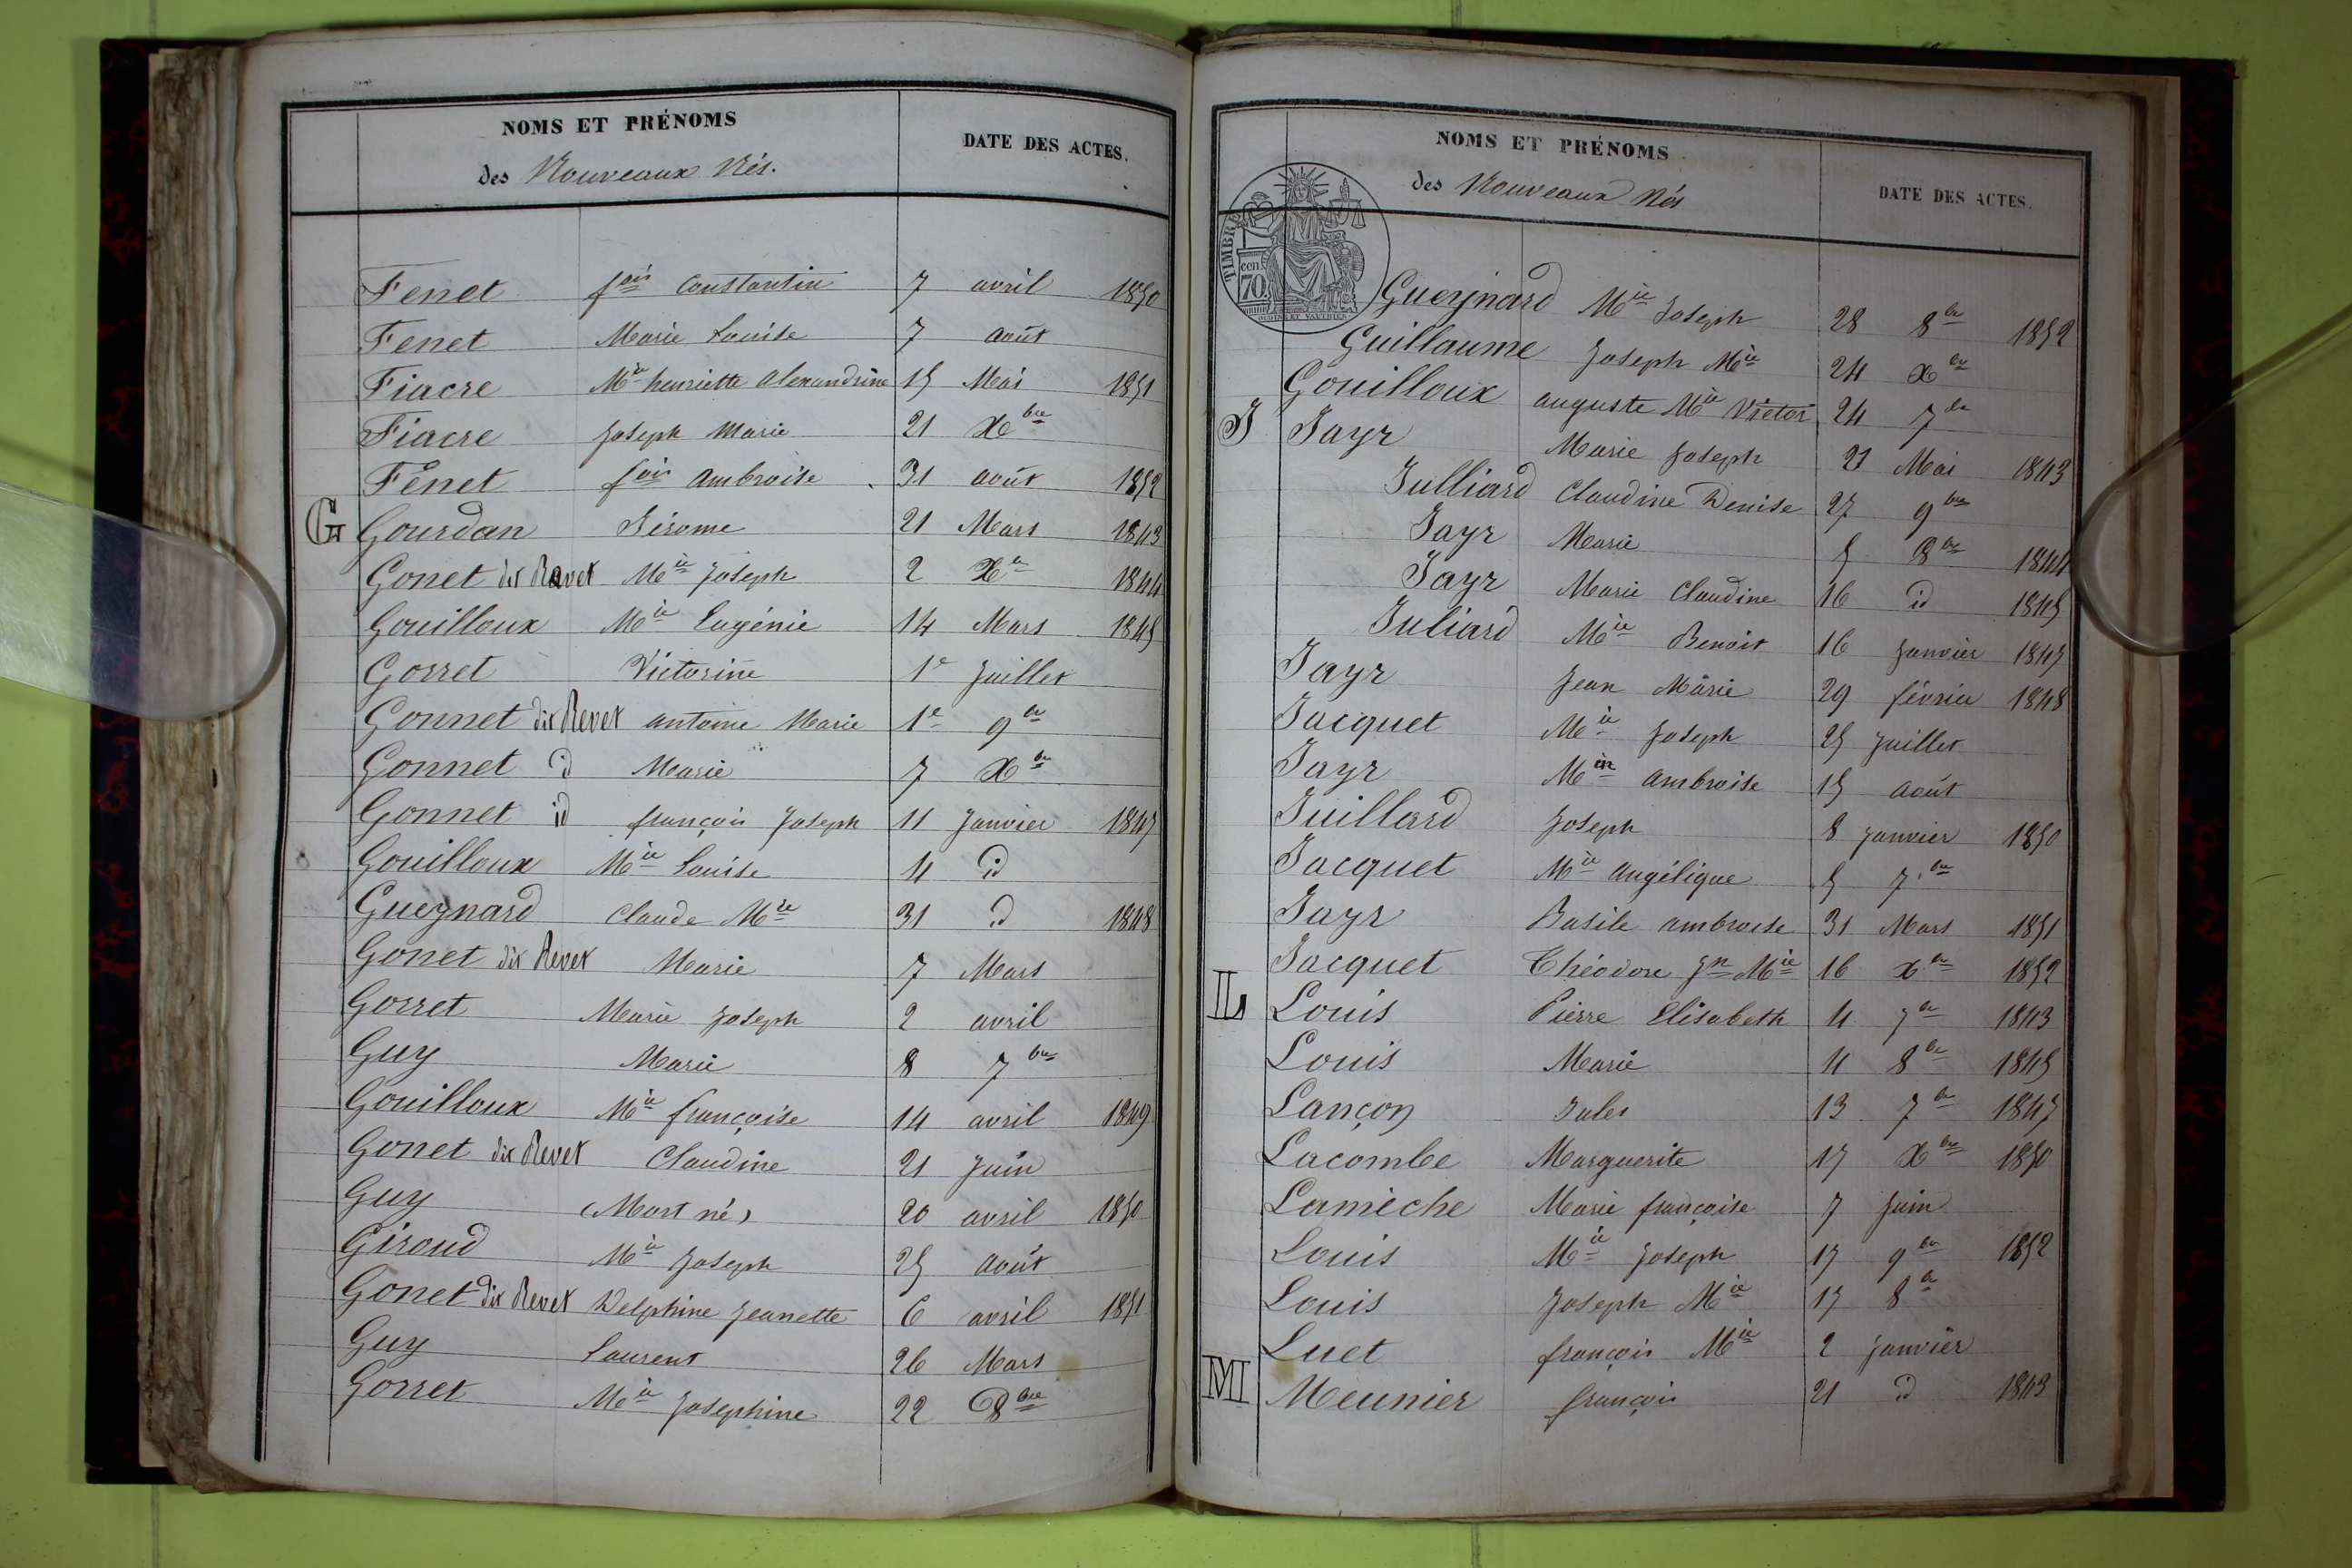 NOMS ET PRÉNOMS
des Nouveaux Nés.
DATE DES ACTES.
Fenet fois Constantin 7 avril 1850
Fenet Marie Louise 7 août
Fiacre Mie henriette alexandrine 15 Mai 1851
Fiacre Joseph Marie 21 Xbre
Fenet fois Ambroise 31 août 1852
G Gourdan Jérome 21 Mars 1843
Gonet dit Ravet Mie Joseph 2 Xe 1844
Gouilloux Mie Eugénie 14 Mars 1845
Gorret Victorine 1e Juillet
Gonnet dit Revet antoine Marie 1e 9bre
Gonnet id Marie 7 Xbre
Gonnet id françois Joseph 11 Janvier 1847
Gouilloux Mie Louise 4 id
Gueynard Claude Mie 31 id 1848
Gonet dit Revet Marie 7 Mars
Gorret Marie Joseph 2 avril
Guy Marie 8 7bre
Gouilloux Mie françoise 14 avril 1849
Gonet dit Revet Claudine 21 Juin
Guy (Mort né) 20 avril 1850
Giroud Mie Joseph 25 août
Gonet dit Revet Delphine Jeanette 6 avril 1851
Guy Laurent 26 Mars
Gorret Mie Josephine 22 8bre
NOMS ET PRÉNOMS
des Nouveaux Nés
DATE DES ACTES.
TIMBRE
70 cen.
OUDINÉ ET VAUTHIER
Gueynard Mie Joseph 28 8bre 1852
Guillaume Joseph Mie 24 Xbre
Gouilloux auguste Mie Victor 24 7bre
J Jayr Marie Joseph 21 Mai 1843
Julliard Claudine Denise 27 9bre
Jayr Marie 5 8bre 1844
Jayr Marie Claudine 16 id 1845
Juliard Mie Benoit 16 Janvier 1847
Jayr Jean Marie 29 février 1848
Jacquet Mie Joseph 25 Juillet
Jayr Mie ambroise 15 août
Juillard Joseph 8 Janvier 1850
Jacquet Mie angélique 5 7bre
Jayr Basile ambroise 31 Mars 1851
Jacquet Théodore Jn Mie 16 Xbre 1852
L Louis Pierre Elisabeth 4 7bre 1843
Louis Marie 4 8bre 1845
Lançon Jules 13 7bre 1847
Lacombe Marguerite 17 Xbre 1850
Lamèche Marie françoise 7 Juin
Louis Mie Joseph 17 9bre 1852
Louis Joseph Mie 17 8e
Luet françois Mie 2 Janvier
M Meunier françois 21 id 1843